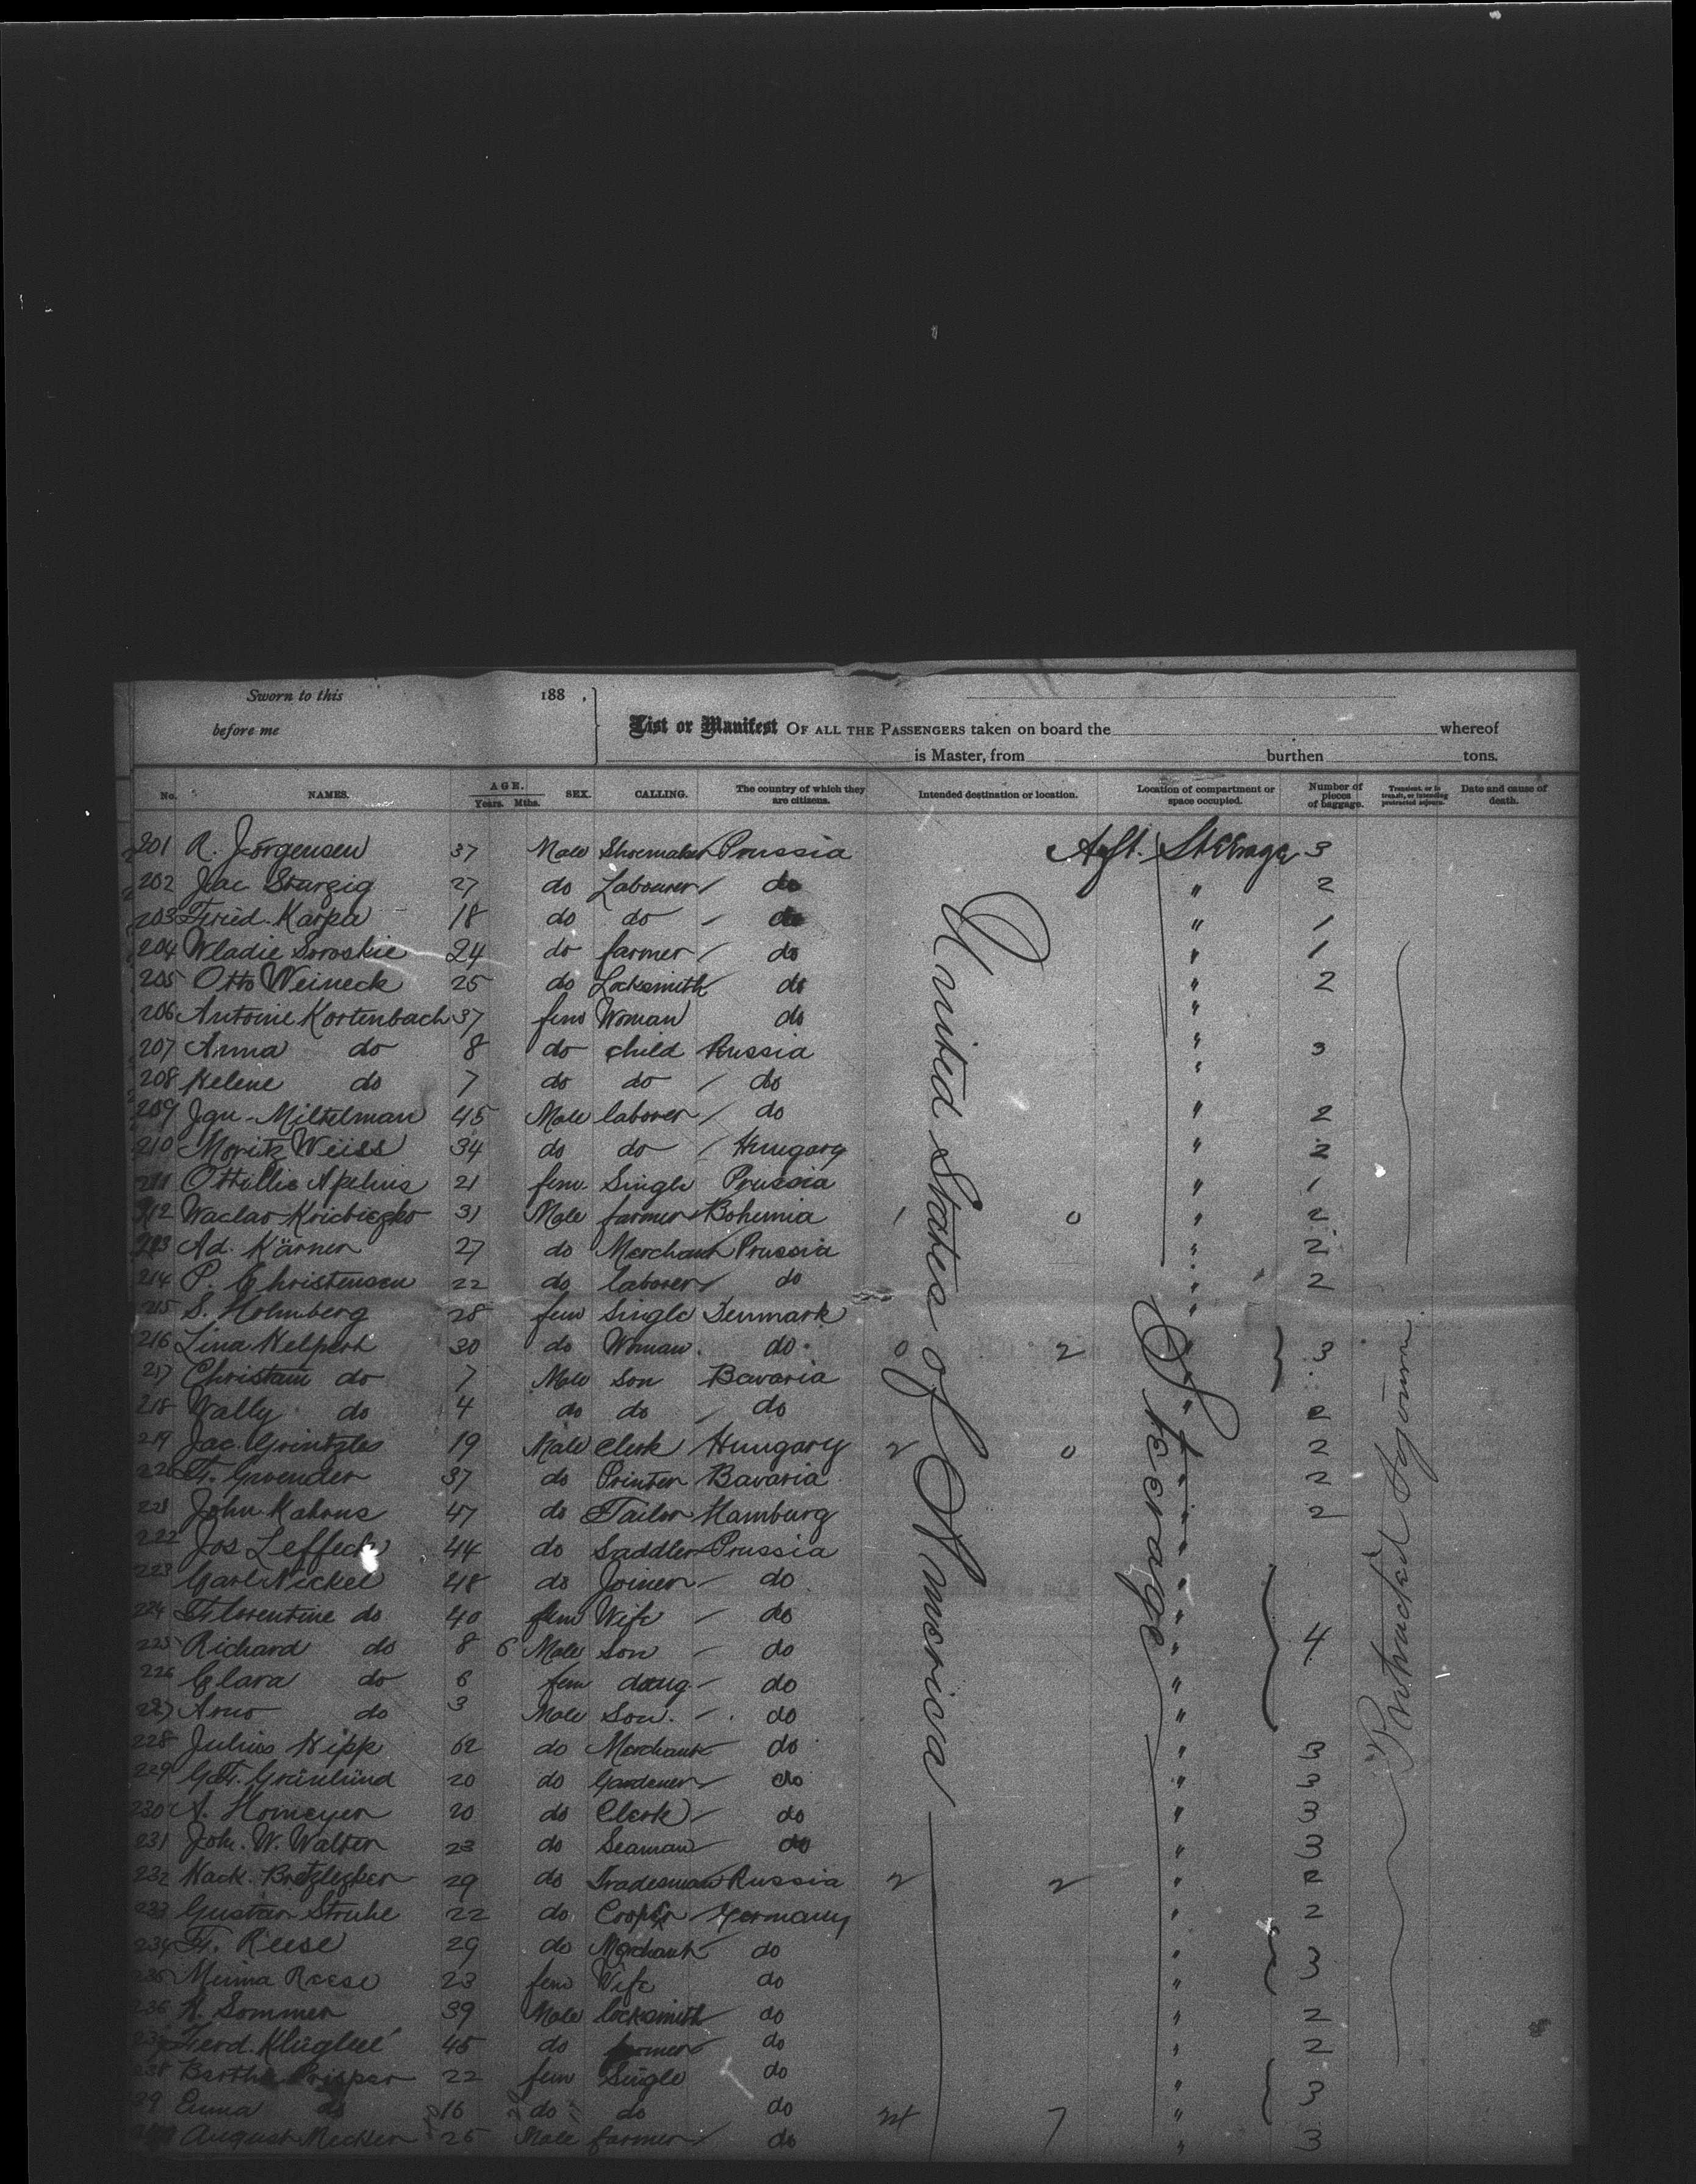 Sworn to this 188 ,
before me
List or Manifest OF ALL THE PASSENGERS taken on board the whereof
is Master, from burthen tons.
No. NAMES. AGE. Years. Mths. SEX. CALLING. The country of which they are citizens. Intended destination or location. Location of compartment or space occupied. Number of pieces of baggage. Transient, or in transit, or intending protracted sojourn. Date and cause of death.
201 R. Jörgensen 37 Male Shoemaker Prussia Aft. Steerage 3
202 Jac Sturzig 27 do Labourer / do " 2
203 Fried. Karpa 18 do do / do " 1
204 Wladie Soroskie 24 do farmer / do " 1
205 Otto Weineck 25 do Locksmith do " 2
206 Antoine Kortenbach 37 fem Woman do "
207 Anna do 8 do child Russia " 3
208 Helene do 7 do do / do "
209 Jgn. Mittelman 45 Male laborer / do " 2
210 Moritz Weiss 34 do do / Hungary " 2
211 Ottillie Apelius 21 fem. Single Prussia " 1
212 Waclao 31 Male farmer Bohemia 1 0 " 2
213 Ad. Kärner 27 do Merchant Prussia " 2
214 P. Christensen 22 do laborer / do " 2
215 S. Holmberg 28 fem Single Denmark "
216 Lina Helpert 30 do Woman. do 0 2 " 3
217 Christam do 7 Male son Bavaria
218 Wally do 4 do do / do " 2
219 Jac. 19 Male Clerk Hungary 2 0 " 2
220 Fr. Gwender 37 do Printer Bavaria " 2
221 John Kahrns 47 do Tailor Hamburg " 2
222 Jos Leffeck 44 do Saddler Prussia "
223 Carl Nickel 48 do Joiner - do "
224 Florentine do 40 fem Wife - do "
225 Richard do 8 6 Male son - do " 4
226 Clara do 6 fem daug. - do "
227 Arno do 3 Male Son. - do "
228 Julius Hipp 62 do Merchant do " 3
229 Grünlünd 20 do Gardener / do " 3
230 A. Homeyer 20 do Clerk / do " 3
231 Joh. W. Walter 23 do Seaman do " 3
232 Mack. 29 do Tradesman Russia 2 2 " 2
233 Gustav Struhe 22 do Cooper Germany " 2
234 Fr. Reese 29 do Merchant do " 3
235 Minna Reese 23 fem Wife do "
236 R. Sommer 39 Male locksmith do " 2
237 Ferd. 45 do farmer do " 2
238 Bertha Prisper 22 fem Single do " 3
239 Emma do 16 do do do "
August Mecker 25 Male farmer / do 7 " 3
United States of America
Steerage
Protracted Sojourn